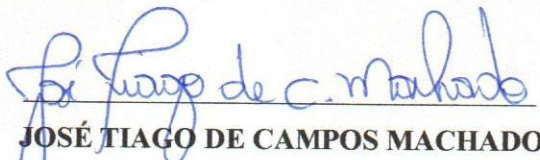 José Tiago de C. Machado
JOSÉ TIAGO DE CAMPOS MACHADO